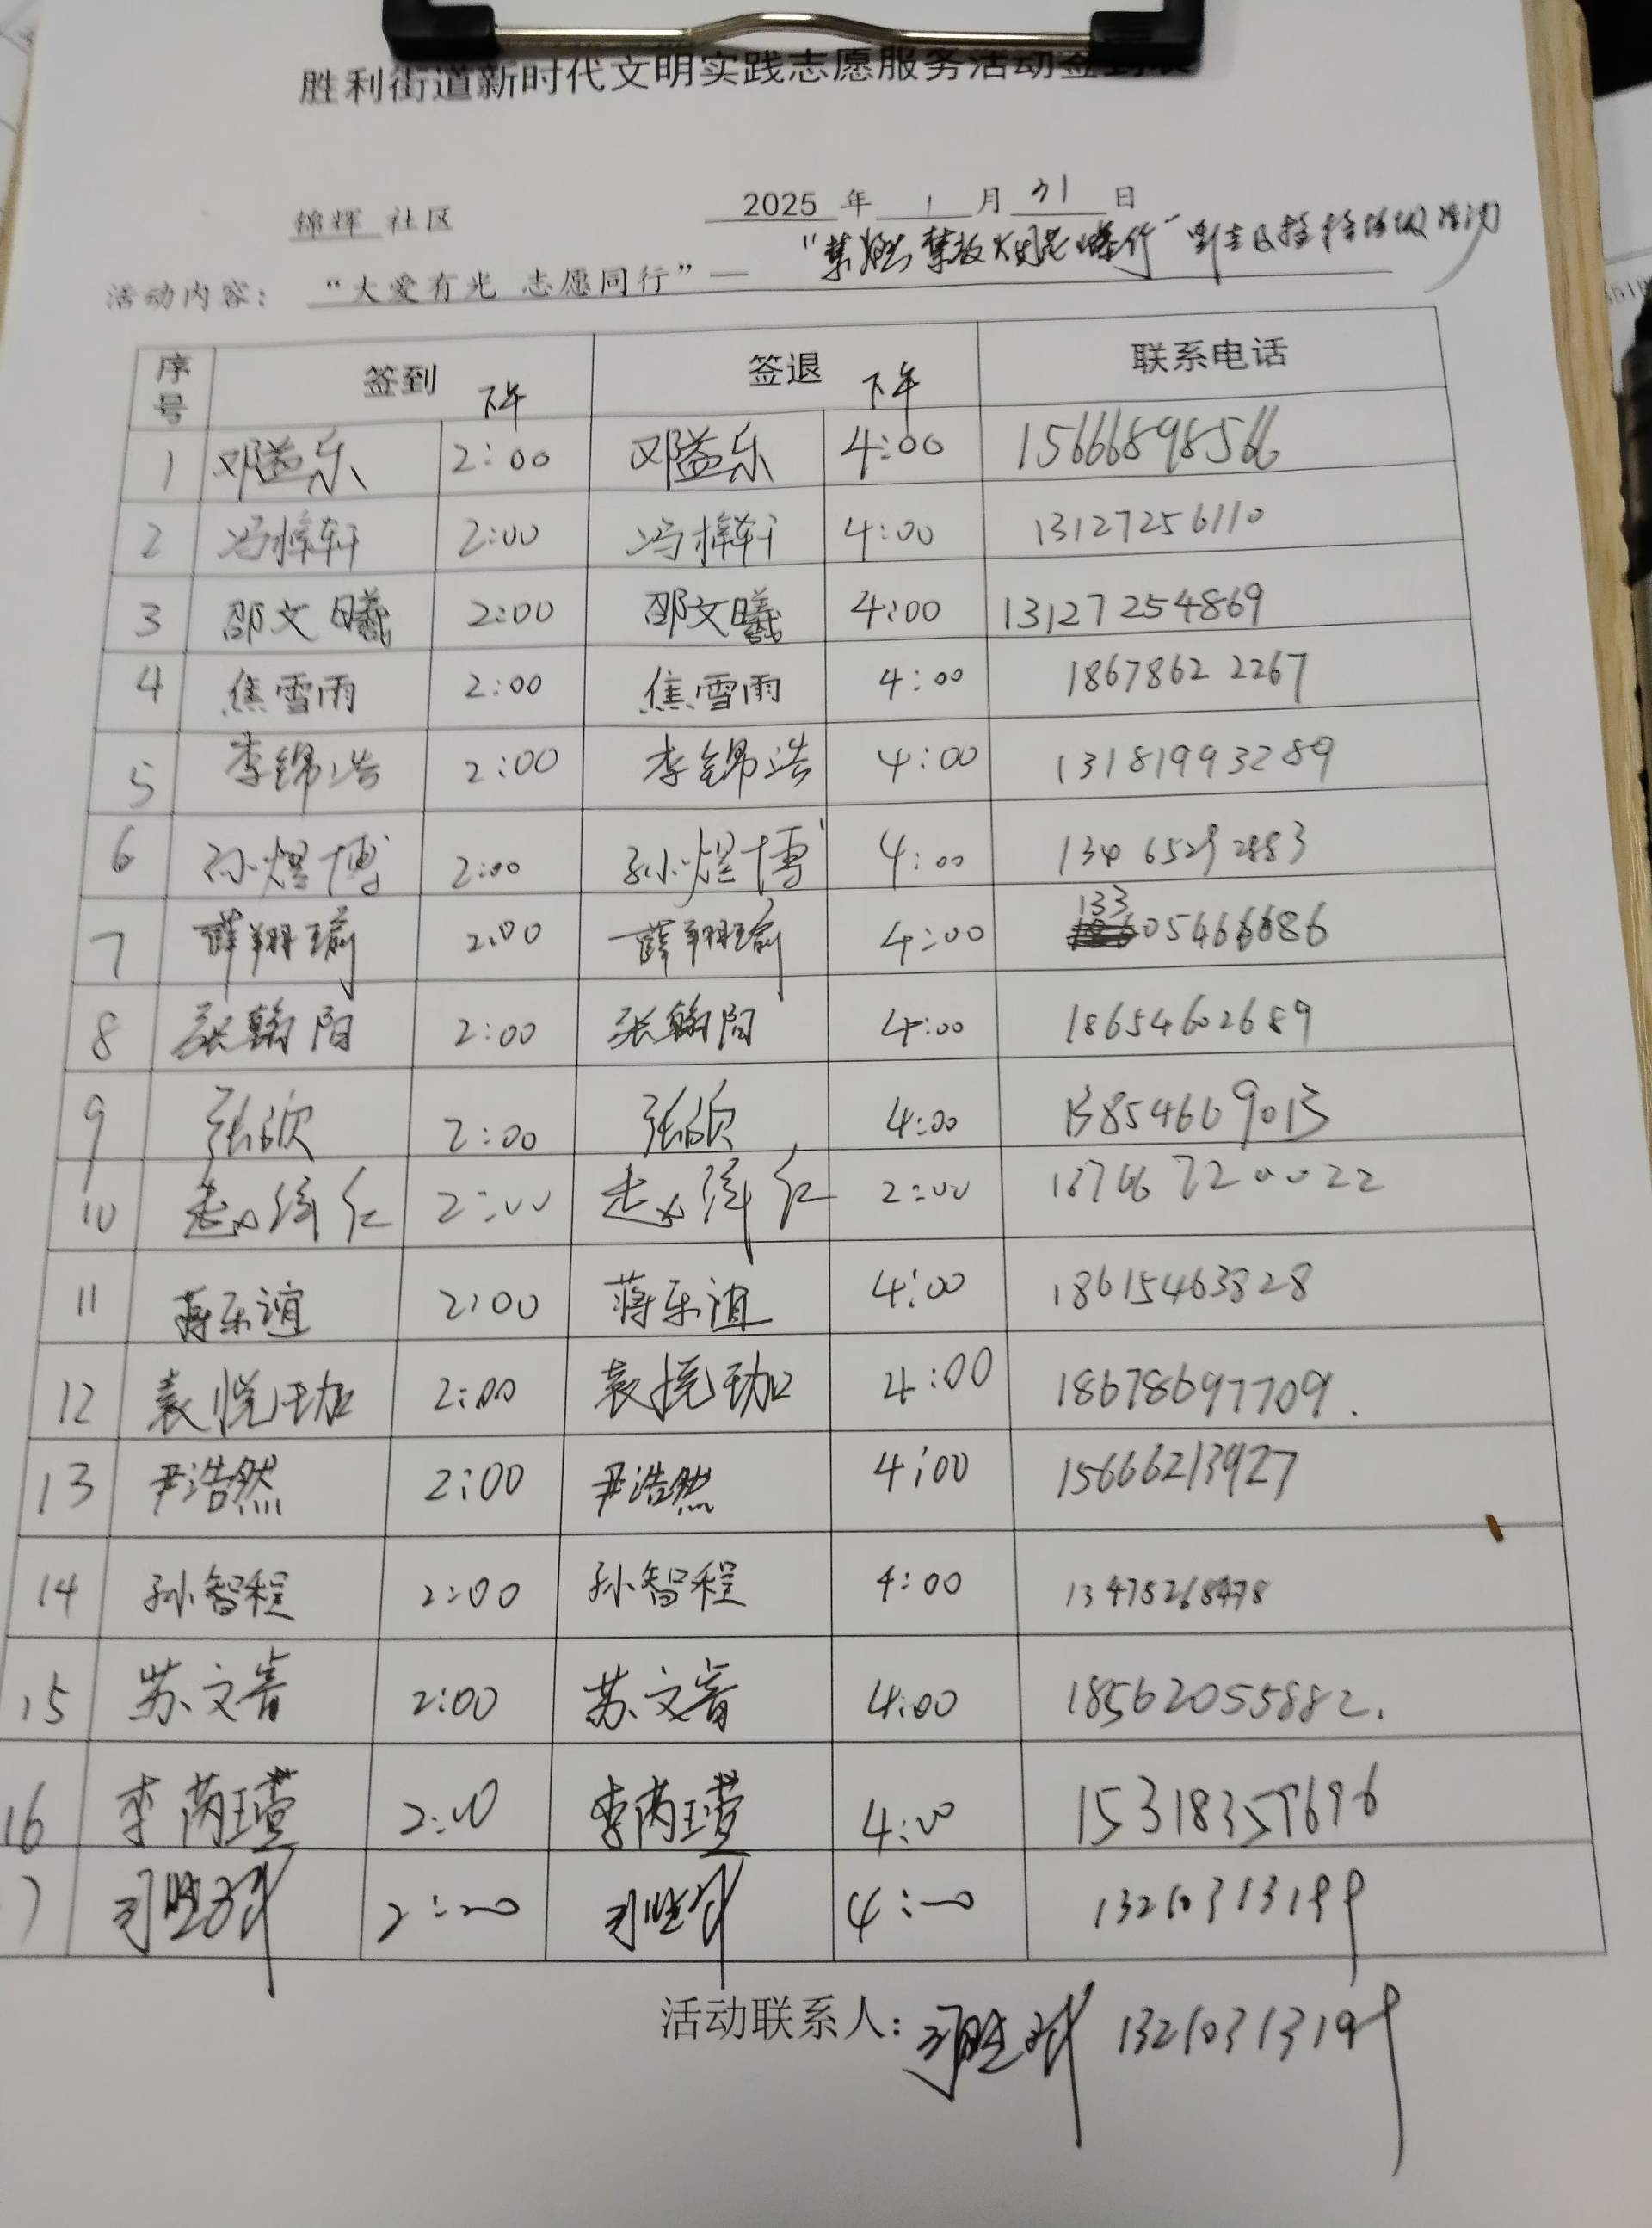 胜利街道新时代文明实践志愿服务活动签到表
锦辉 社区 2025 年 1 月 31 日
活动内容： “大爱有光 志愿同行”— “禁燃禁放烟花爆竹”
序号 签到 下午 签退 下午 联系电话
1 邓益乐 2:00 邓益乐 4:00 15666898566
2 冯梓轩 2:00 冯梓轩 4:00 13127256110
3 邵文曦 2:00 邵文曦 4:00 13127254869
4 焦雪雨 2:00 焦雪雨 4:00 18678622267
5 李锦浩 2:00 李锦浩 4:00 13181993289
6 孙煜博 2:00 孙煜博 4:00 134065292883
7 薛翔瑜 2:00 薛翔瑜 4:00 13305466686
8 张翰阳 2:00 张翰阳 4:00 18654602689
9 张欣 2:00 张欣 4:00 13854609013
10 赵 红 2:00 赵 红 2:00 18766720022
11 蒋乐谊 2:00 蒋乐谊 4:00 18615463828
12 袁悦珈 2:00 袁悦珈 4:00 18678697709.
13 尹浩然 2:00 尹浩然 4:00 15666213927
14 孙智程 2:00 孙智程 4:00 13475268478
15 苏文睿 2:00 苏文睿 4:00 18562055882.
16 李芮瑄 2:00 李芮瑄 4:00 15318357696
7 2:00 4:00 13210313199
活动联系人： 13210313199